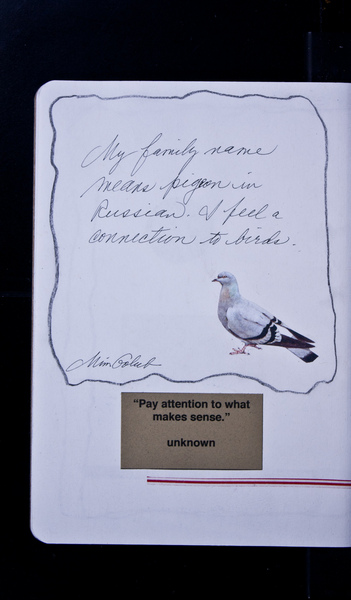 My family name
means pigeon in
Russian. I feel a
connection to birds.
Mim Golub
"Pay attention to what
makes sense."
unknown